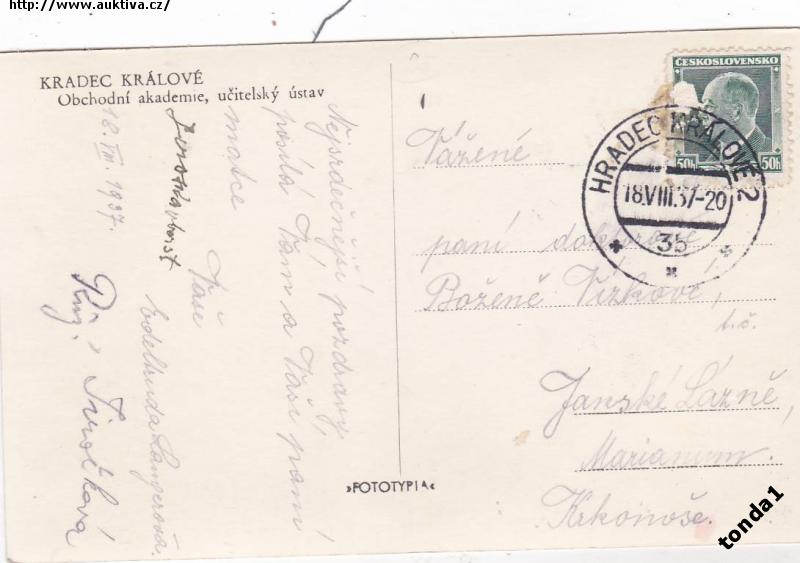 http://www.auktiva.cz/
KRADEC KRÁLOVÉ
Obchodní akademie, učitelský ústav
ČESKOSLOVENSKO
50h 50h
HRADEC KRÁLOVÉ 2
18.VIII.37-20
35
Vážené
paní doktorové
Boženě Vízkové,
t.č.
Janské Lázně,
Marianum.
Krkonoše.
Nejsrdečnější pozdravy
posílá Vám a Vaší paní
matce
Vaše
Edeltruda Langerová.
18. VIII. 1937.
»FOTOTYPIA«
tonda1